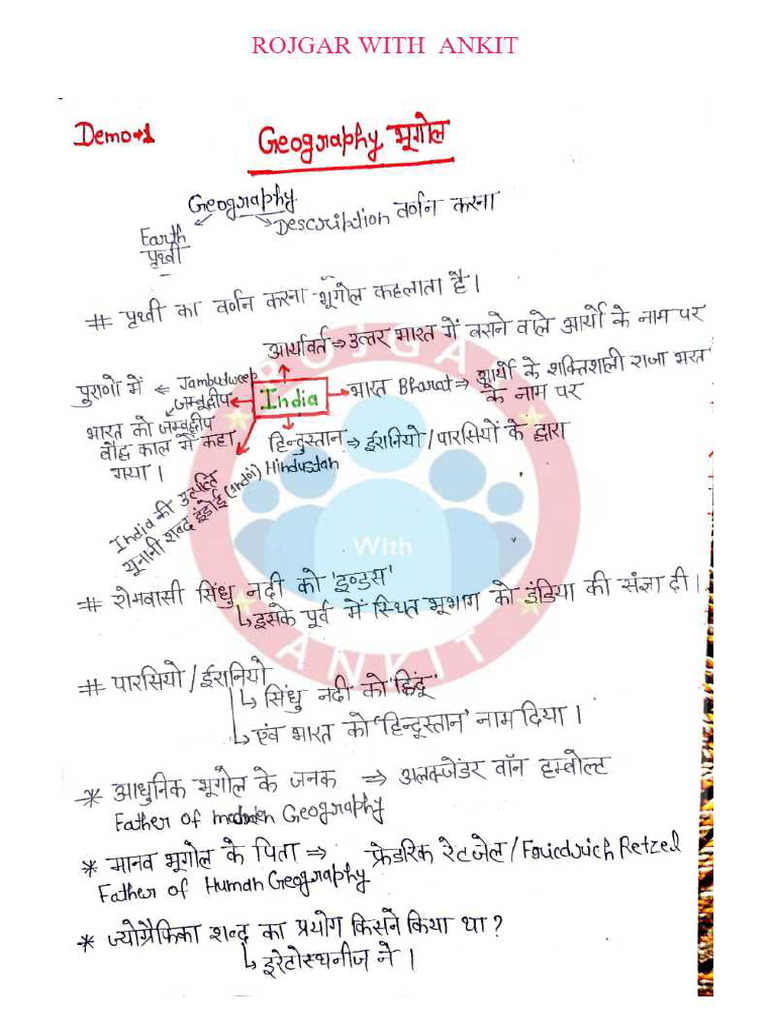 ROJGAR WITH ANKIT
Demo→1
Geography भूगोल
Geography
Earth
पृथ्वी
Description वर्णन करना
# पृथ्वी का वर्णन करना भूगोल कहलाता है।
आर्यावर्त ⇒ उत्तर भारत में बसने वाले आर्यो के नाम पर
पुराणो में ⇐ Jambudweep
जम्बूद्वीप
India
भारत Bharat ⇒ आर्यो के शक्तिशाली राजा भरत
के नाम पर
भारत को जम्बूद्वीप
बौद्ध काल में कहा
गया।
हिन्दुस्तान ⇒ ईरानियो/पारसियों के द्वारा
Hindustan
India की उत्पत्ति
यूनानी शब्द इंडोई (Indoi)
# रोमवासी सिंधु नदी को 'इण्डस'
↳ इसके पूर्व में स्थित भूभाग को इंडिया की संज्ञा दी।
# पारसियो/ईरानियो
↳ सिंधु नदी को 'हिंदू'
↳ एंव भारत को 'हिन्दूस्तान' नाम दिया।
* आधुनिक भूगोल के जनक ⇒ अलक्जेंडर वॉन हम्बोल्ट
Father of Geography
* मानव भूगोल के पिता ⇒ फ्रेडरिक रेटजेल/Friedrich Retzel
Father of Human Geography
* ज्योग्रैफिका शब्द का प्रयोग किसने किया था?
↳ इरेटोस्थनीज ने।
ROJGAR
With
ANKIT